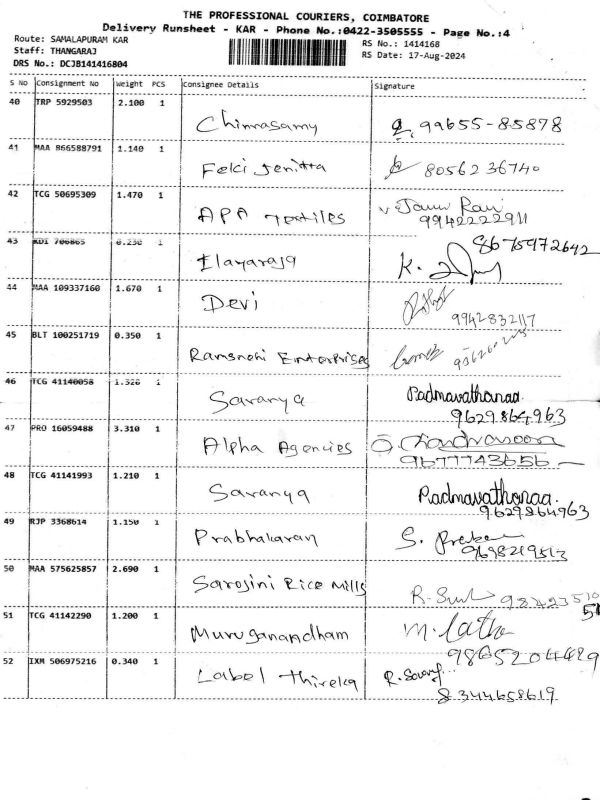 THE PROFESSIONAL COURIERS, COIMBATORE
Delivery Runsheet - KAR - Phone No.:0422-3505555 - Page No.:4
Route: SAMALAPURAM KAR RS No.: 1414168
Staff: THANGARAJ RS Date: 17-Aug-2024
DRS No.: DCJB141416804
S No Consignment No Weight PCS Consignee Details Signature
40 TRP 5929503 2.100 1
Chinnasamy 99655-85878
41 MAA 866588791 1.140 1
Felci Jenitta 8056236740
42 TCG 50695309 1.470 1
APA Textiles
9942222911
43 KDI 706865 0.230 1 8675972642
Elayaraja K.
44 MAA 109337160 1.670 1
Devi
9942832117
45 BLT 100251719 0.350 1
Enterprises
46 TCG 41140058 1.320 1
Saranya Padmavathanaa
9629864963
47 PRO 16059488 3.310 1
Alpha Agencies
9677743656
48 TCG 41141993 1.210 1
Saranya Padmavathanaa.
9629864963
49 RJP 3368614 1.150 1
Prabhakaran S.
9698219513
50 MAA 575625857 2.690 1
Sarojini Rice Mills R.
51 TCG 41142290 1.200 1
Muruganandham M. Latha
9865204429
52 IXM 506975216 0.340 1
Label R.
8344658619